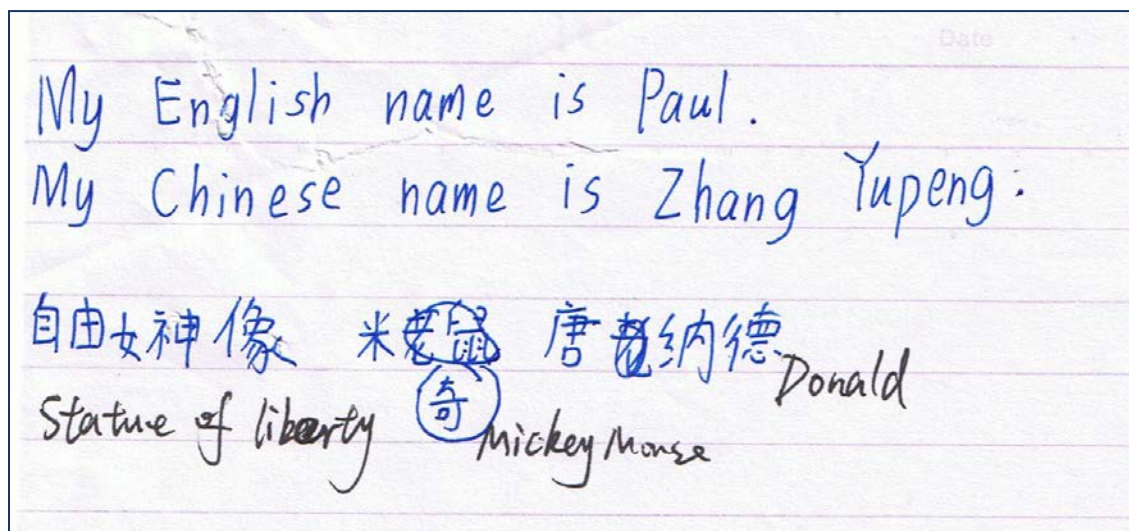 Date
My English name is Paul.
My Chinese name is Zhang Yupeng.
自由女神像 米老鼠 唐纳德
Donald
奇
Statue of liberty Mickey Mouse